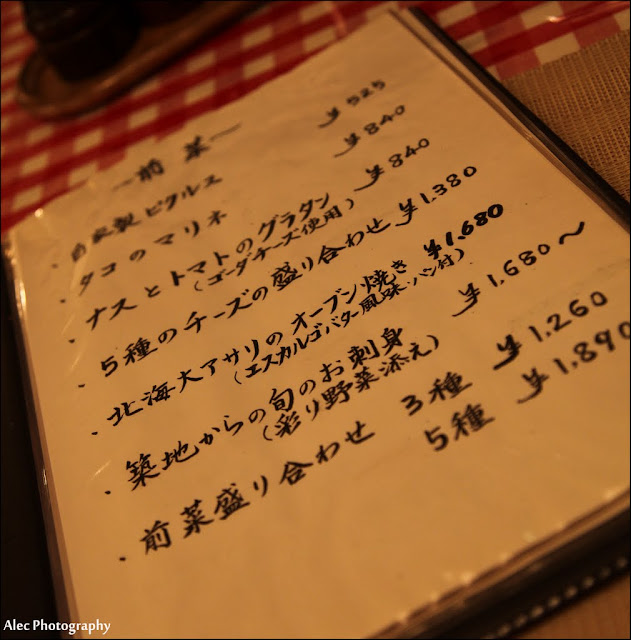 ～前菜～
・自家製ピクルス ¥525
・タコのマリネ ¥840
・ナスとトマトのグラタン ¥840
(ゴーダチーズ使用)
・5種のチーズの盛り合わせ ¥1.380
・北海大アサリのオーブン焼き ¥1,680
(エスカルゴバター風味・パン付)
・築地からの旬のお刺身 ¥1.680〜
(彩り野菜添え)
・前菜盛り合わせ 3種 ¥1.260
5種 ¥1.890
Alec Photography